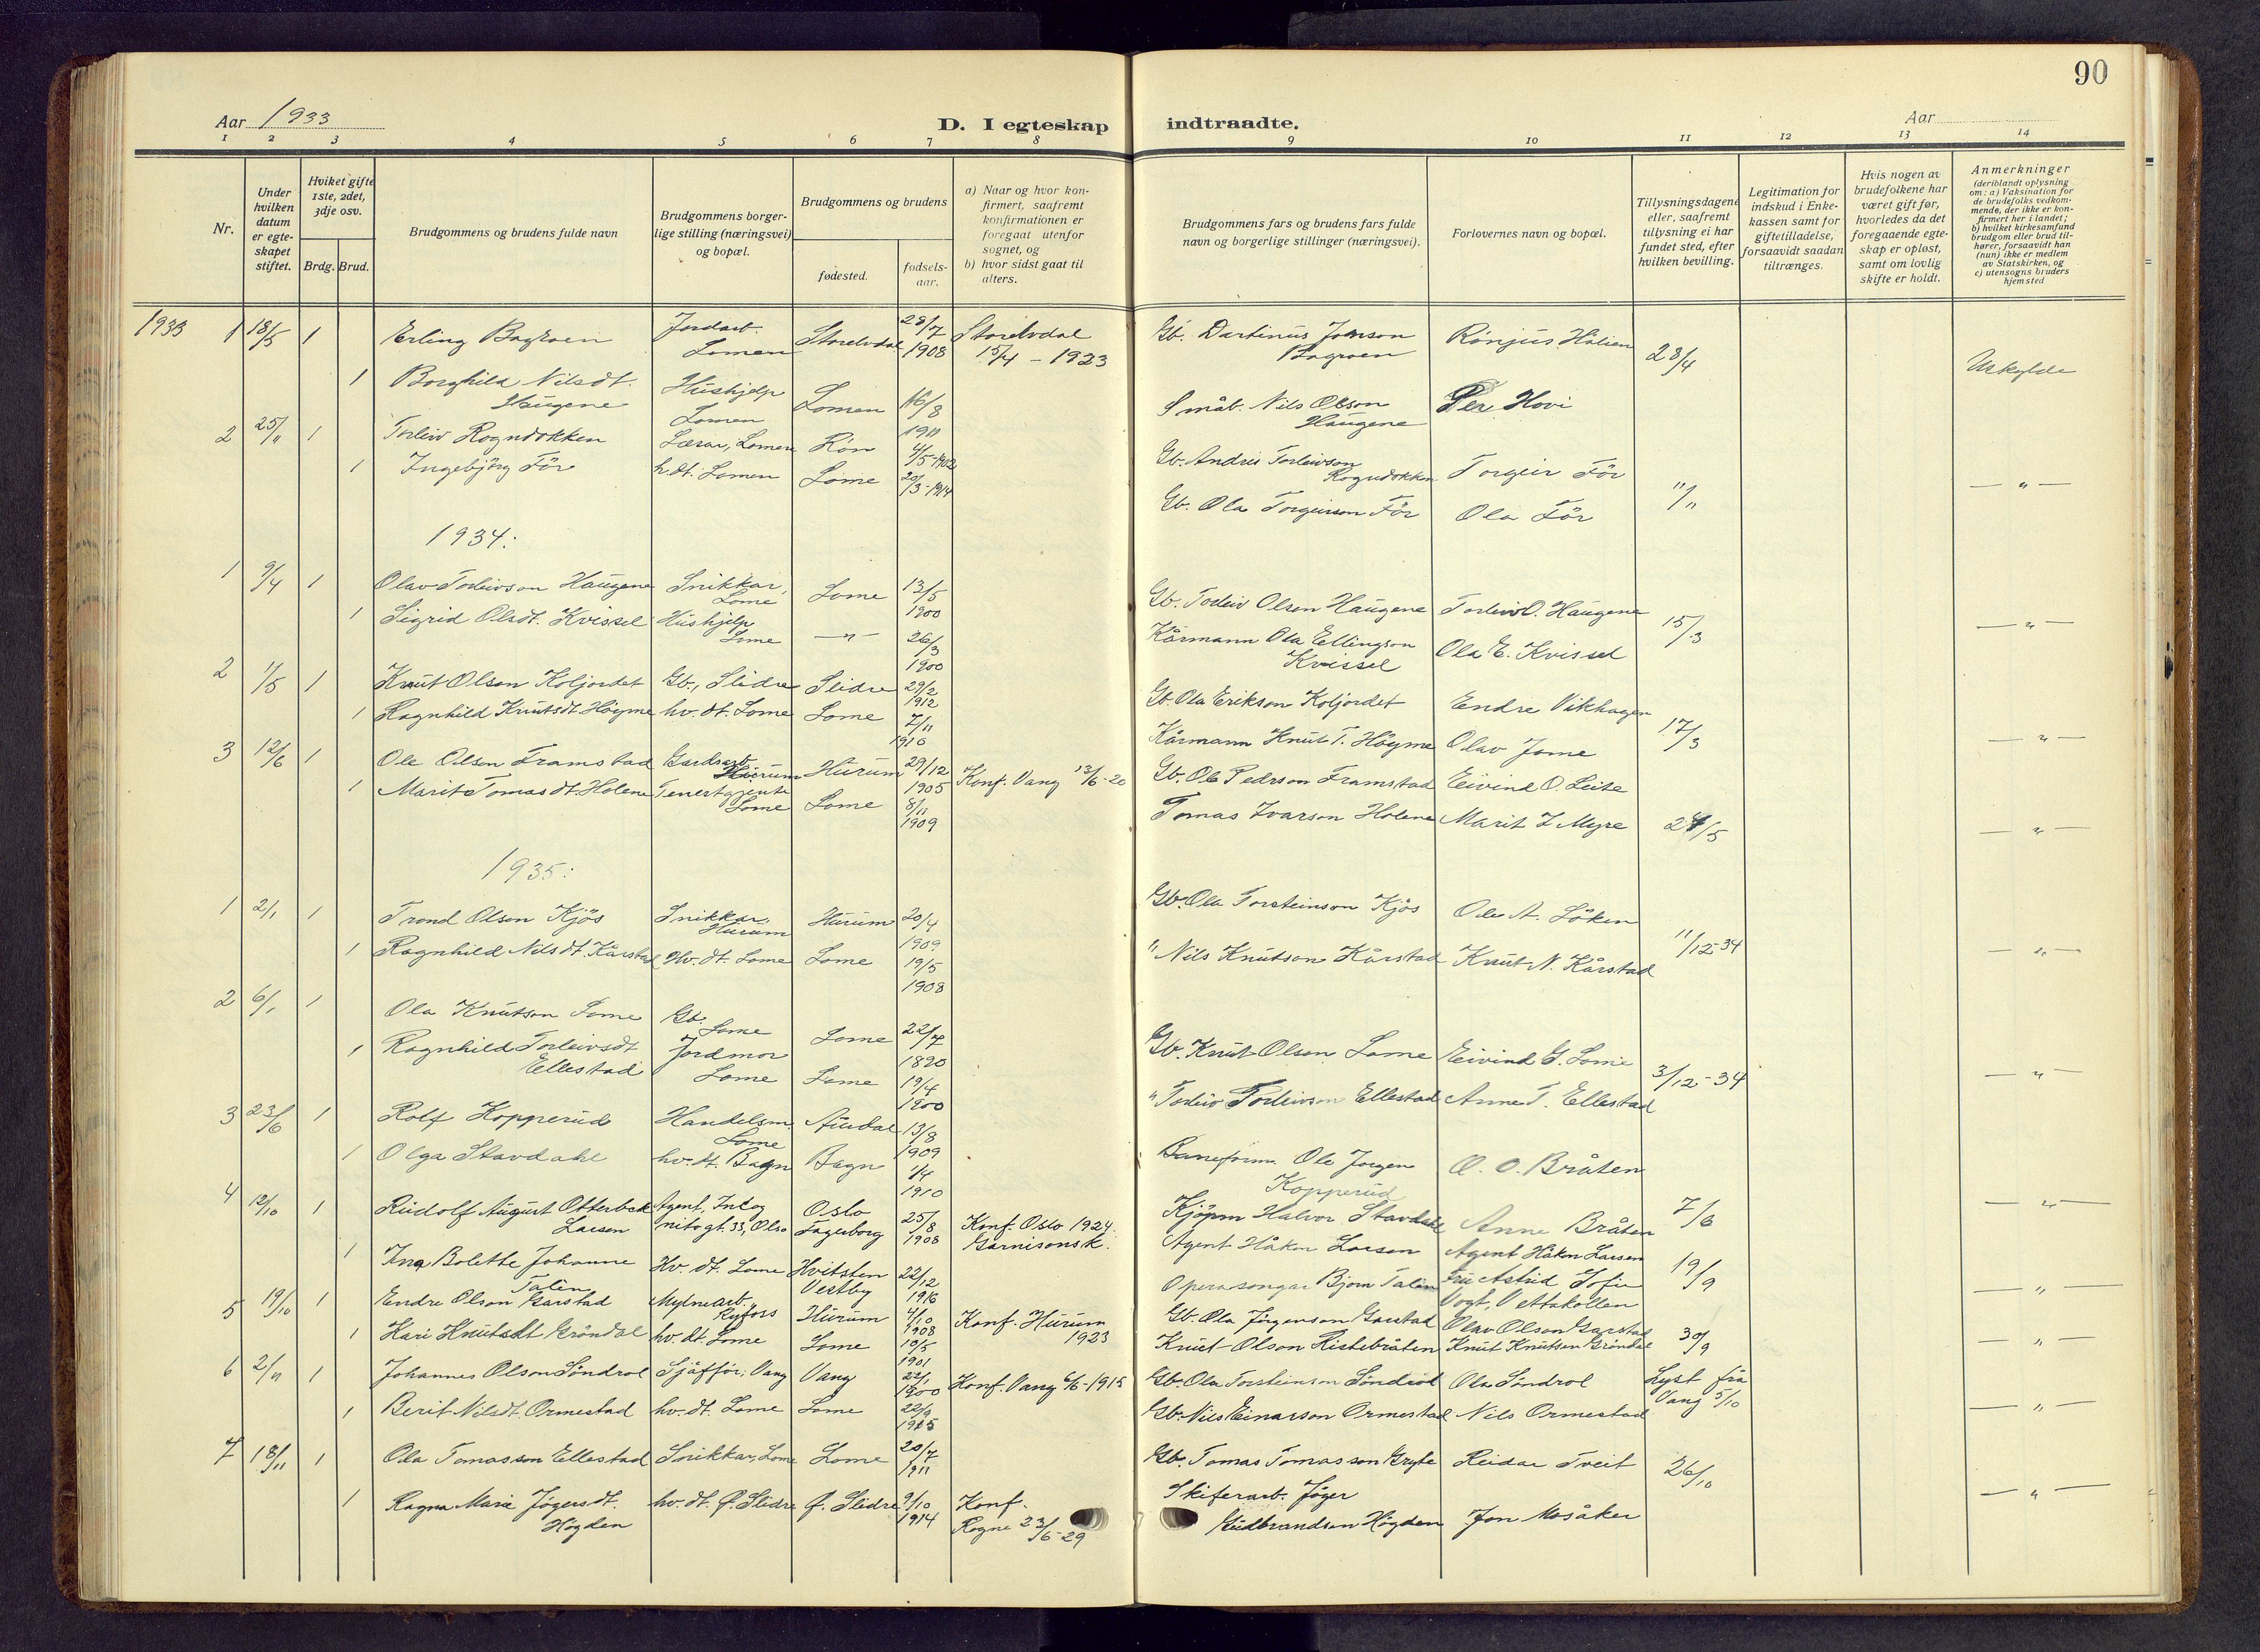 90
Aar 1933
D. I egteskap indtraadte.
Aar
1 2 3 4 5 6 7 8 9 10 11 12 13 14
Nr.
Under hvilken datum er egteskapet stiftet.
Hviket gifte 1ste, 2det, 3dje osv.
Brdg. Brud.
Brudgommens og brudens fulde navn
Brudgommens borgerlige stilling (næringsvei) og bopæl.
Brudgommens og brudens
fødested.
fødselsaar.
a) Naar og hvor konfirmert, saafremt konfirmationen er foregaat utenfor sognet, og
b) hvor sidst gaat til alters.
Brudgommens fars og brudens fars fulde navn og borgerlige stillinger (næringsvei).
Forlovernes navn og bopæl.
Tillysningsdagene eller, saafremt tillysning ei har fundet sted, efter hvilken bevilling.
Legitimation for indskud i Enkekassen samt for giftetilladelse, forsaavidt saadan tiltrænges.
Hvis nogen av brudefolkene har været gift før, hvorledes da det foregaaende egteskap er opløst, samt om lovlig skifte er holdt.
Anmerkninger (deriblandt oplysning om: a) Vaksination for de brudefolks vedkommende, der ikke er konfirmert her i landet; b) hvilket kirkesamfund brudgom eller brud tilhører, forsaavidt han (hun) ikke er medlem av Statskirken, og c) utensogns bruders hjemsted
1933 1 18/5 1 Erling Bagroen Jordarb. Lomen Storelvdal 28/7 1908 Storelvdal 15/4 - 1923 Gb. Martinus Joanson Bagroen Rönjus Hålien 28/4 Uskylde
1 Borghild Nilsdt. Haugene Hushjelp Lomen Lomen 16/8 1911 Småb. Nils Olson Haugene Per Hovi
2 25/11 1 Torleiv Rogndokken Lærar, Lomen Rön 4/5-1902 Gb. Andris Torleivson Rogndokken Torgeir För 11/11 - " -
1 Ingebjörg För h. dt. Lomen Lome 20/3-1914 Gb. Ola Torgeirson För Ola För
1934:
1 9/4 1 Olav Torleivson Haugene Snikkar, Lome Lome 13/5 1900 Gb. Torleiv Olson Haugene Torleiv O. Haugene 15/3 - " -
1 Sigrid Olsdt. Kvissel Hushjelp Lome - " - 26/3 1900 Kårmann Ola Ellingson Kvissel Ola E. Kvissel
2 1/5 1 Knut Olson Koljordet Gb., Slidre Slidre 29/2 1912 Gb. Ola Erikson Koljordet Endre Vikhagen 17/3 - " -
1 Ragnhild Knutsdt. Höyme hv. dt. Lome Lome 7/11 1910 Kårmann Knut T. Höyme Olav Jome
3 12/6 1 Ole Olsen Framstad Gardsarb. Hurum Hurum 29/12 1905 Konf. Vang 13/6-20 Gb. Ole Pedrson Framstad Eivind O. Leite 24/5 - " -
1 Marit Tomasdt. Holene Tenestgjente Lome Lome 8/11 1909 Tomas Ivarson Holene Marit I. Myre
1935:
1 2/1 1 Trond Olson Kjös Snikkar, Hurum Hurum 20/4 1909 Gb. Ola Torsteinson Kjös Ole A. Löken 11/12-34 - " -
1 Ragnhild Nilsdt. Kårstad Hv. dt. Lome Lome 19/5 1908 " Nils Knutson Kårstad Knut N. Kårstad
2 6/1 1 Ola Knutson Lome Gb. Lome Lome 22/7 1890 Gb. Knut Olson Lome Eivind G. Lome 3/12-34 - " -
1 Ragnhild Torleivsdt Ellestad Jordmor Lome Lome 19/4 1900 " Torleiv Torleivson Ellestad Anne T. Ellestad
3 23/6 1 Rolf Kopperud Handelsm. Lome Aurdal 13/8 1909 Baneform. Ole Jorgen Kopperud O. O. Bråten 7/6 - " -
1 Olga Stavdahl hv. dt. Bagn Bagn 1910 Kjöpm Halvor Stavdahl Anne Bråten
4 12/10 1 Rudolf August Otterbek Larsen Agent, Incognitogt. 33, Olso Oslo Fagerborg 25/8 1908 Konf. Oslo 1924. Garnisonsk. Agent Håkon Larsen Agent Håkon Larsen 19/9 - " -
1 Ina Bolette Johanne Talén Hv. dt. Lome Hvitsten Vestby 22/12 1916 Operasongar Bjorn Talén Fru Astrid Sofie Vogt, Vettakollen
5 19/10 1 Endre Olson Garstad Mylnearb. Ryfoss Hurum 4/10 1908 Konf. Hurum 1923 Gb. Ola Jörgenson Garstad Olav Olson Garstad 30/9 - " -
1 Kari Knutsdt Gröndal hv. dt. Lome Lome 10/5 1901 Knut Olson Ristebråten Knut Knutsen Gröndal
6 2/11 1 Johannes Olson Söndrol Sjåffór, Vang Vang 22/1 1900 Konf. Vang 6/6-1915 Gb. Ola Torsteinson Söndrol Ola Söndrol Lyst frå Vang 5/10 - " -
1 Berit Nilsdt. Ormestad hv. dt. Lome Lome 22/9 1915 Gb. Nils Einarson Ormestad Nils Ormestad
7 18/11 1 Ola Tomasson Ellestad Snikkar, Lome Lome 20/7 1911 Gb. Tomas Tomasson Gryte Reidar Tveit 26/10 - " -
1 Ragna Marie Jögersdt. Högden hv. dt. Ø. Slidre Ø. Slidre 9/10 1914 Konf. Rogne 23/6-29 Skiferarb. Jöger Gudbrandson Högden Jon Mosåker